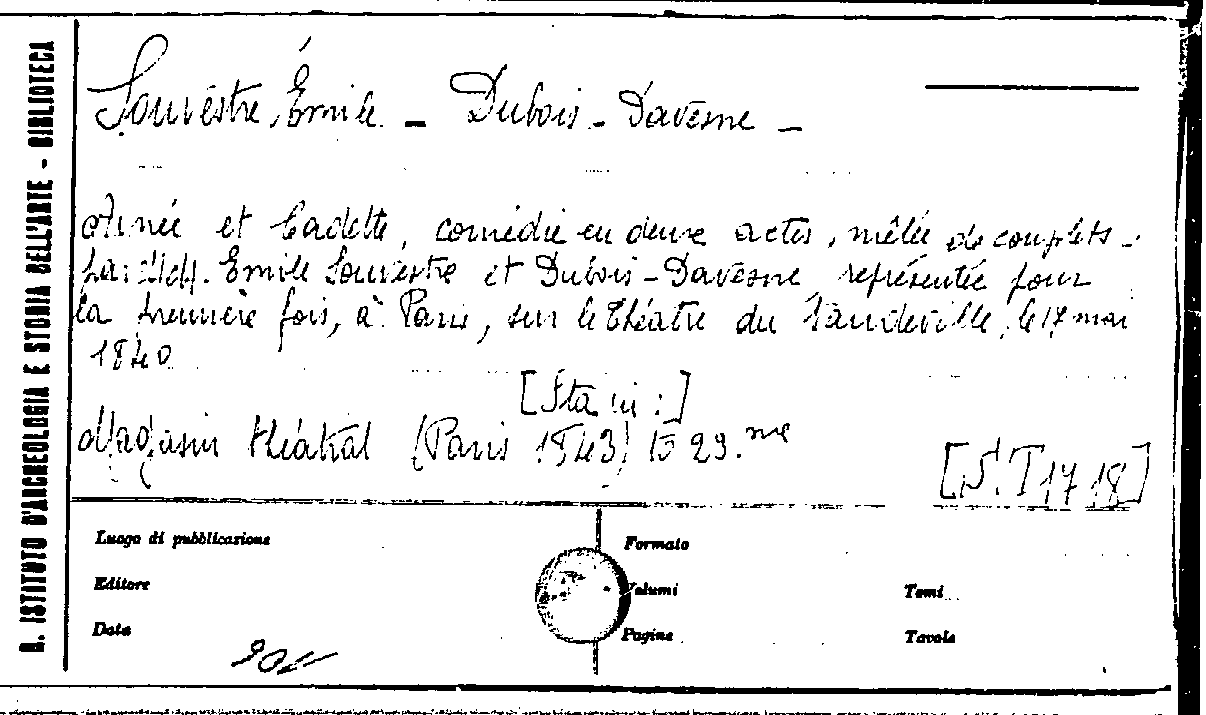 R. ISTITUTO D'ARCHEOLOGIA E STORIA DELL'ARTE - BIBLIOTECA
Souvestre, Émile - Dubois-Davesne -
Ainée et Cadette, comédie en deux actes, mêlée de couplets -
par MM. Emile Souvestre et Dubois-Davesne représentée pour
la première fois, à Paris, sur le théatre du Vaudeville, le 17 mai
1840
[Sta in:]
Magasin théatral (Paris 1843) to 29.me
[S.T 17 18]
Luogo di pubblicazione
Formato
Editore
Volumi
Tomi
Data
Pagine
Tavole